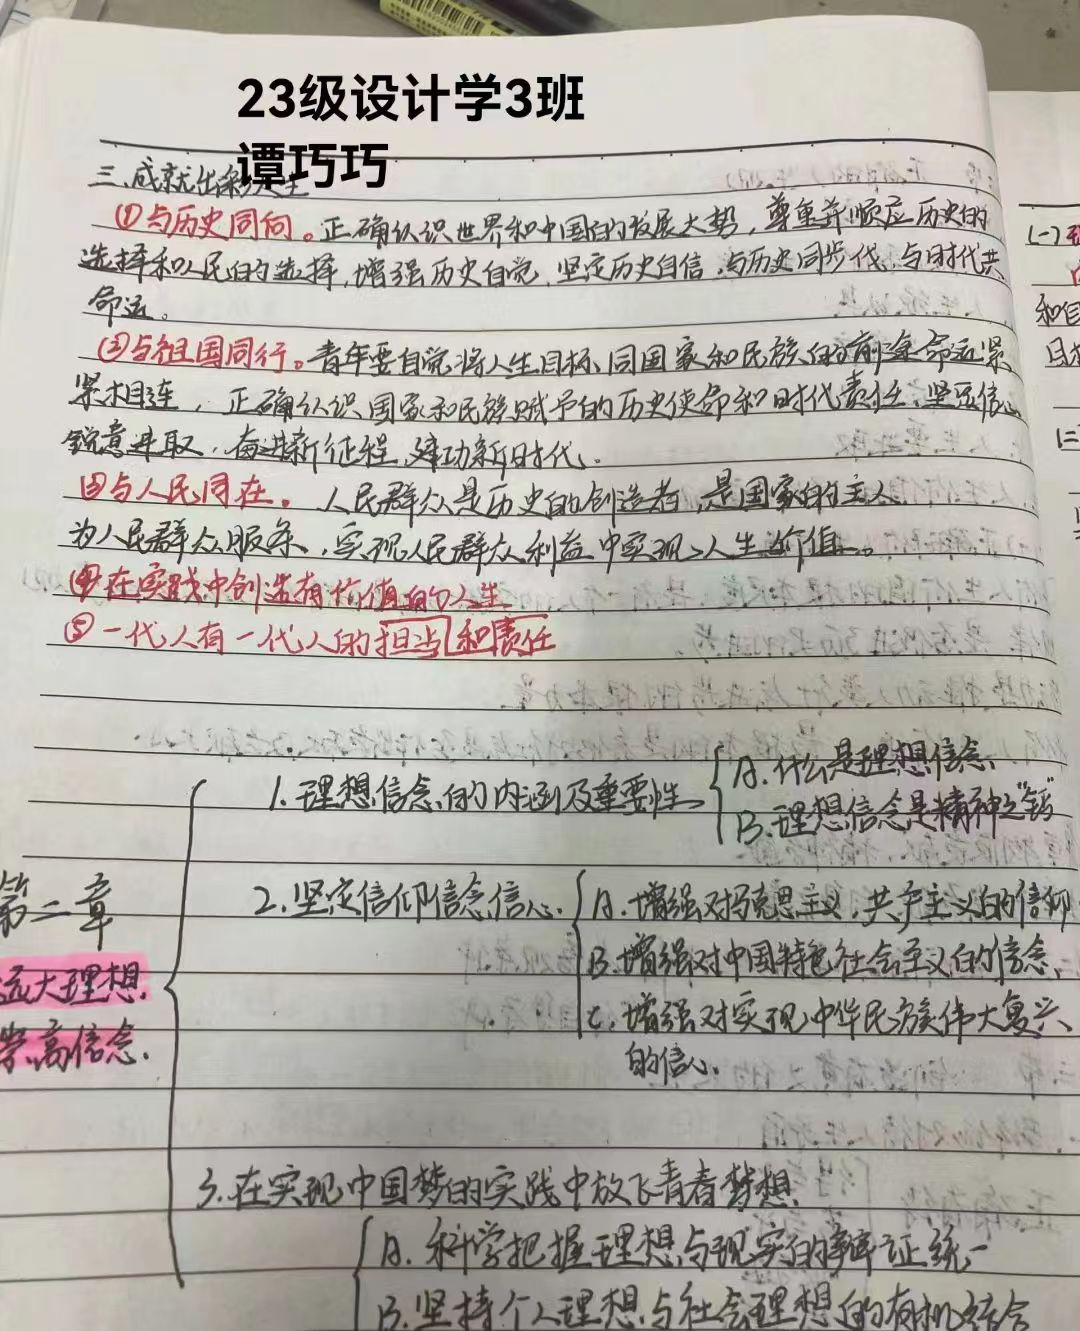 23级设计学3班
谭巧巧
三、成就出彩人生
(1)与历史同向。正确认识世界和中国的发展大势，尊重并顺应历史的
选择和人民的选择，增强历史自觉，坚定历史自信，与历史同步伐，与时代共
命运。
(2)与祖国同行。青年要自觉将人生目标同国家和民族的前途命运紧
紧相连，正确认识国家和民族赋予的历史使命和时代责任，坚定信心
锐意进取，奋进新征程，建功新时代。
③与人民同在。人民群众是历史的创造者，是国家的主人
为人民群众服务，实现人民群众利益中实现人生价值。
④在实践中创造有价值的人生
⑤一代人有一代人的担当和责任
第二章
远大理想
崇高信念.
1.理想信念的内涵及重要性
A.什么是理想信念
B.理想信念是精神之"钙"
2.坚定信仰信念信心.
A.增强对马克思主义，共产主义的信仰
B.增强对中国特色社会主义的信念
C.增强对实现中华民族伟大复兴
的信心.
3.在实现中国梦的实践中放飞青春梦想
A.科学把握理想与现实的辩证统一
B.坚持个人理想与社会理想的有机结合
(一)
和自
目标
(二